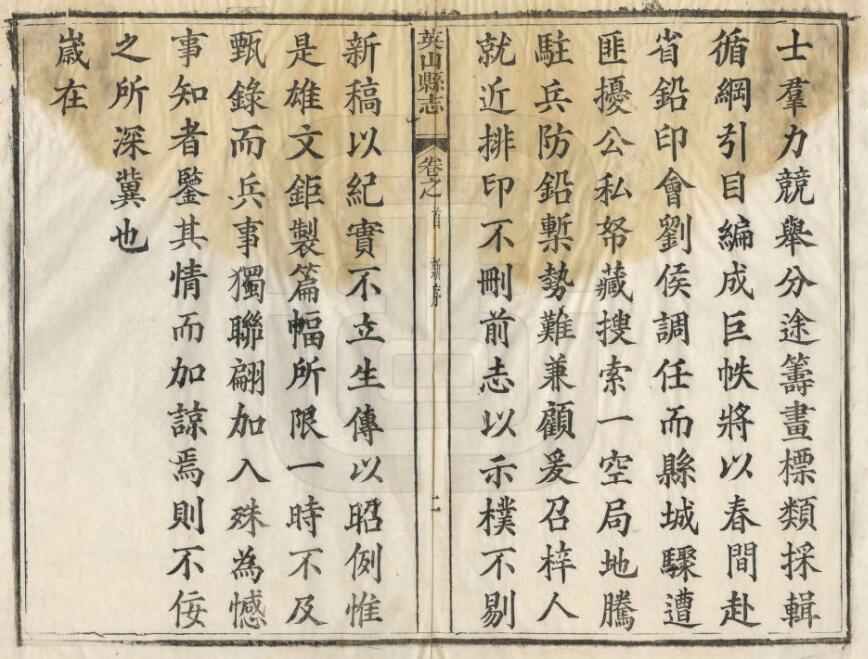 士羣力競舉分途籌畫標類採輯
循綱引目編成巨帙將以春間赴
省鉛印會劉侯調任而縣城驟遭
匪擾公私帑藏搜索一空局地騰
駐兵防鉛槧勢難兼顧爰召梓人
就近排印不刪前志以示樸不剔
英山縣志 卷之首 新序 二
新稿以紀實不立生傳以昭例惟
是雄文鉅製篇幅所限一時不及
甄錄而兵事獨聯翩加入殊為憾
事知者鑒其情而加諒焉則不佞
之所深冀也
歲在